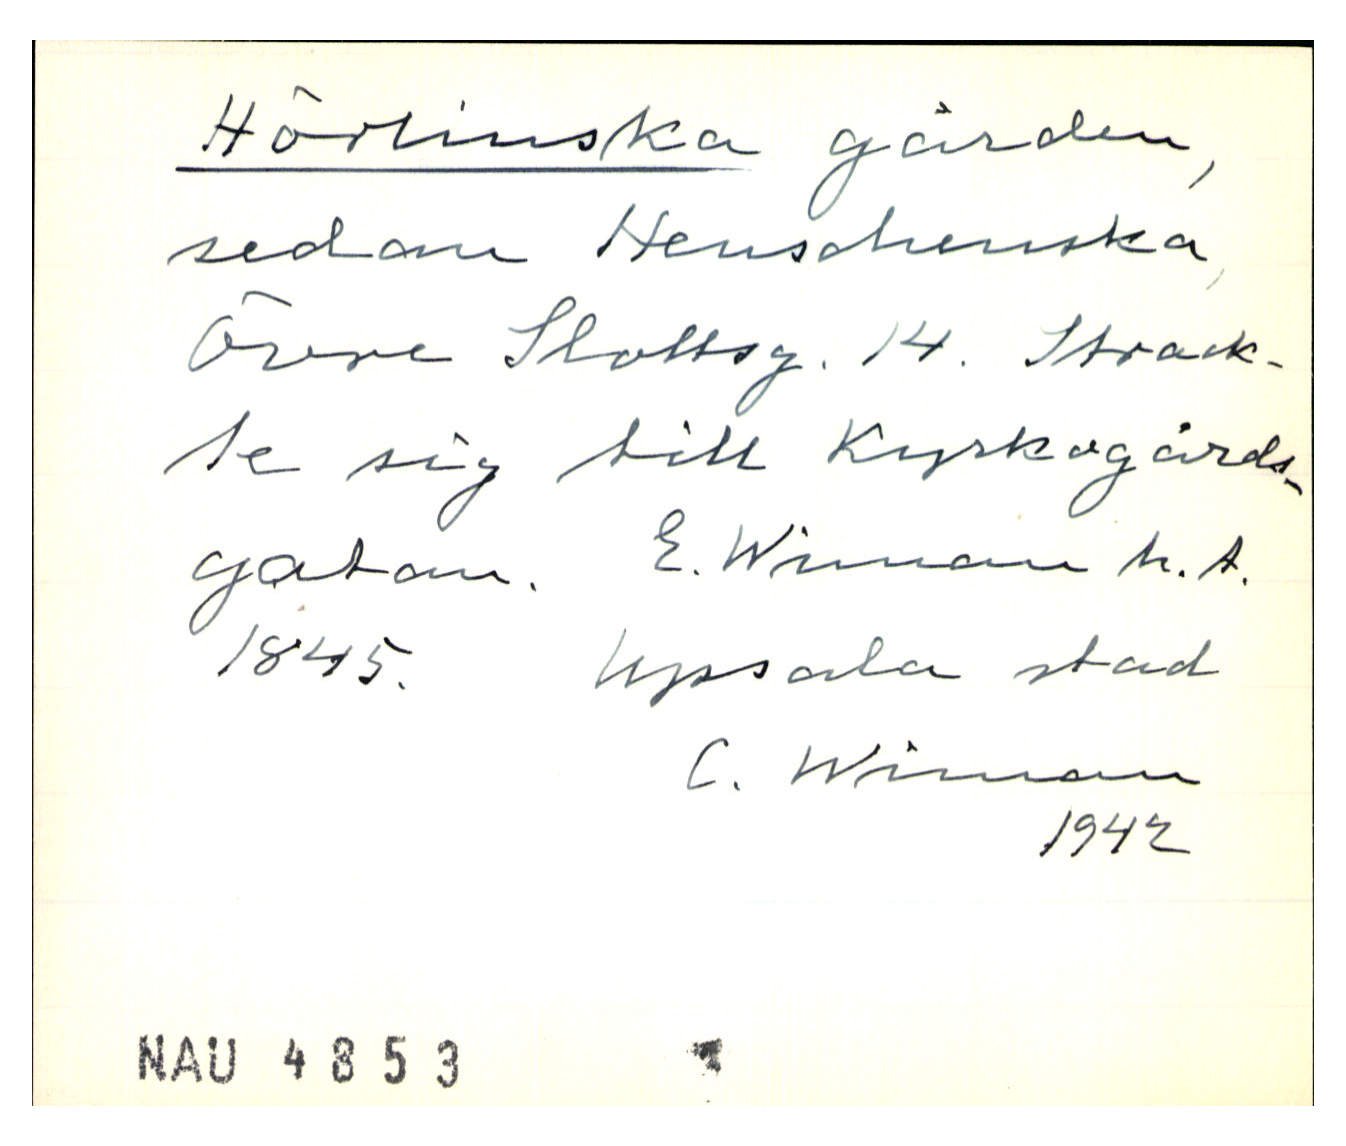 Hörlinska gården,
sedan Henschenska,
Övre Slottsg. 14. Strack-
te sig till Kyrkogårds-
gatan. E. Wiman h. t.
1845. Upsala stad
C. Wiman
1942
NAU 4853